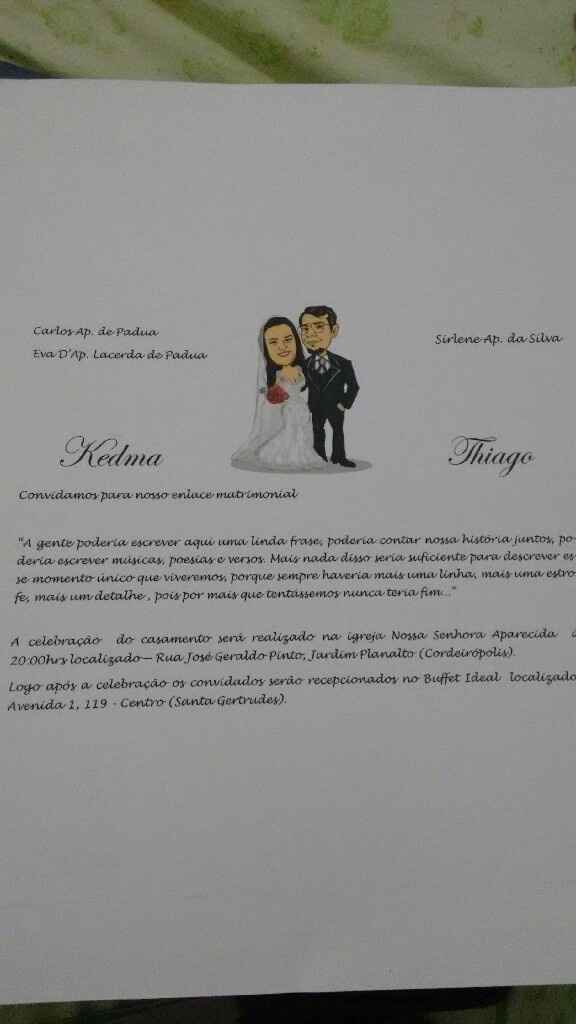 Carlos Ap. de Padua
Eva D'Ap. Lacerda de Padua
Sirlene Ap. da Silva
Kedma
Thiago
Convidamos para nosso enlace matrimonial
"A gente poderia escrever aqui uma linda frase, poderia contar nossa história juntos, po-
deria escrever músicas, poesias e versos. Mais nada disso seria suficiente para descrever es-
se momento único que viveremos, porque sempre haveria mais uma linha, mais uma estro-
fe, mais um detalhe , pois por mais que tentássemos nunca teria fim..."
A celebração do casamento será realizado na igreja Nossa Senhora Aparecida
20:00hrs localizado— Rua José Geraldo Pinto, Jardim Planalto (Cordeirópolis).
Logo após a celebração os convidados serão recepcionados no Buffet Ideal localizado
Avenida 1, 119 - Centro (Santa Gertrudes).